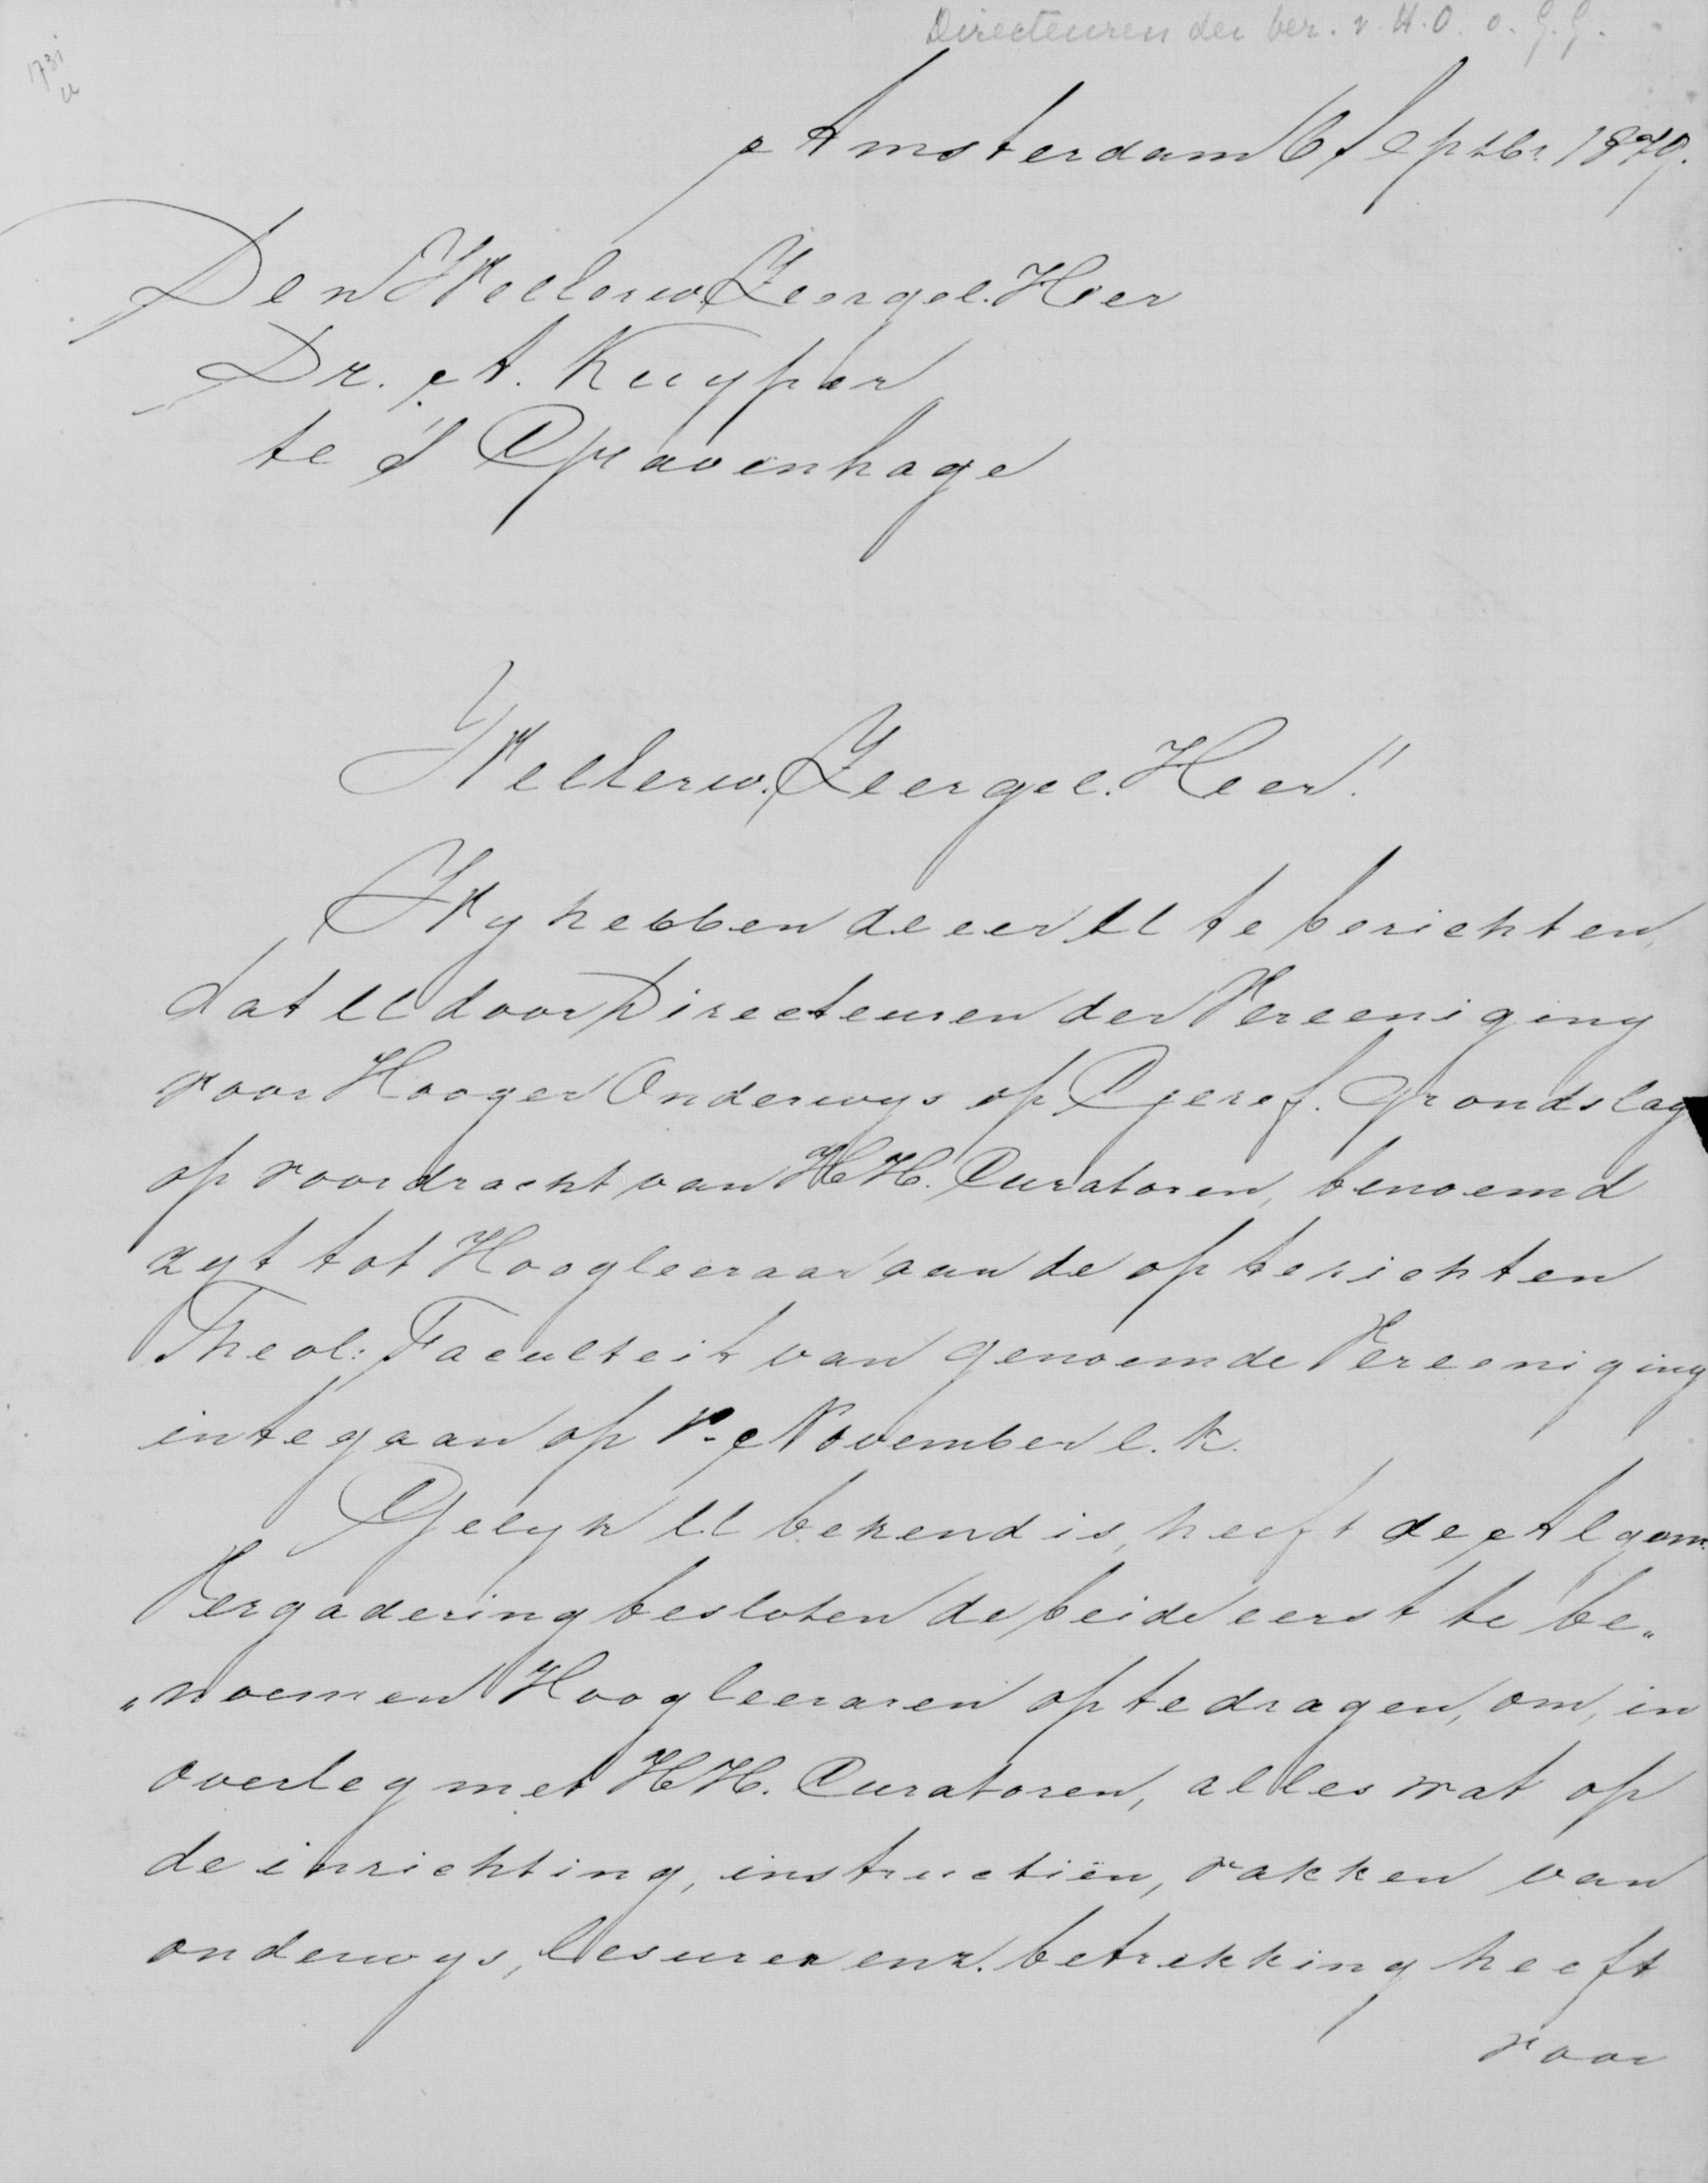 Directeuren der Ver. v. H.O. o. G.G.
1731
Amsterdam 6 Septbr. 1879.
Den Weleerw. Zeergel. Heer
Dr. A. Kuyper
te 's Gravenhage
Weleerw. Zeergel. Heer!
Wy hebben de eer U te berichten,
dat U door Directeuren der Vereeniging
voor Hooger Onderwys op Geref. Grondslag
op voordracht van HH. Curatoren, benoemd
zyt tot Hoogleeraar aan de op te richten
Theol: Faculteit van genoemde Vereeniging
in te gaan op 1º November e.k.
Gelyk U bekend is, heeft de Algem.
Vergadering besloten de beide eerst te be„
„noemen Hoogleeraren op te dragen, om, in
overleg met HH. Curatoren, alles wat op
de inrichting, instructiën, vakken van
onderwys, lesuren enz. betrekking heeft
voor